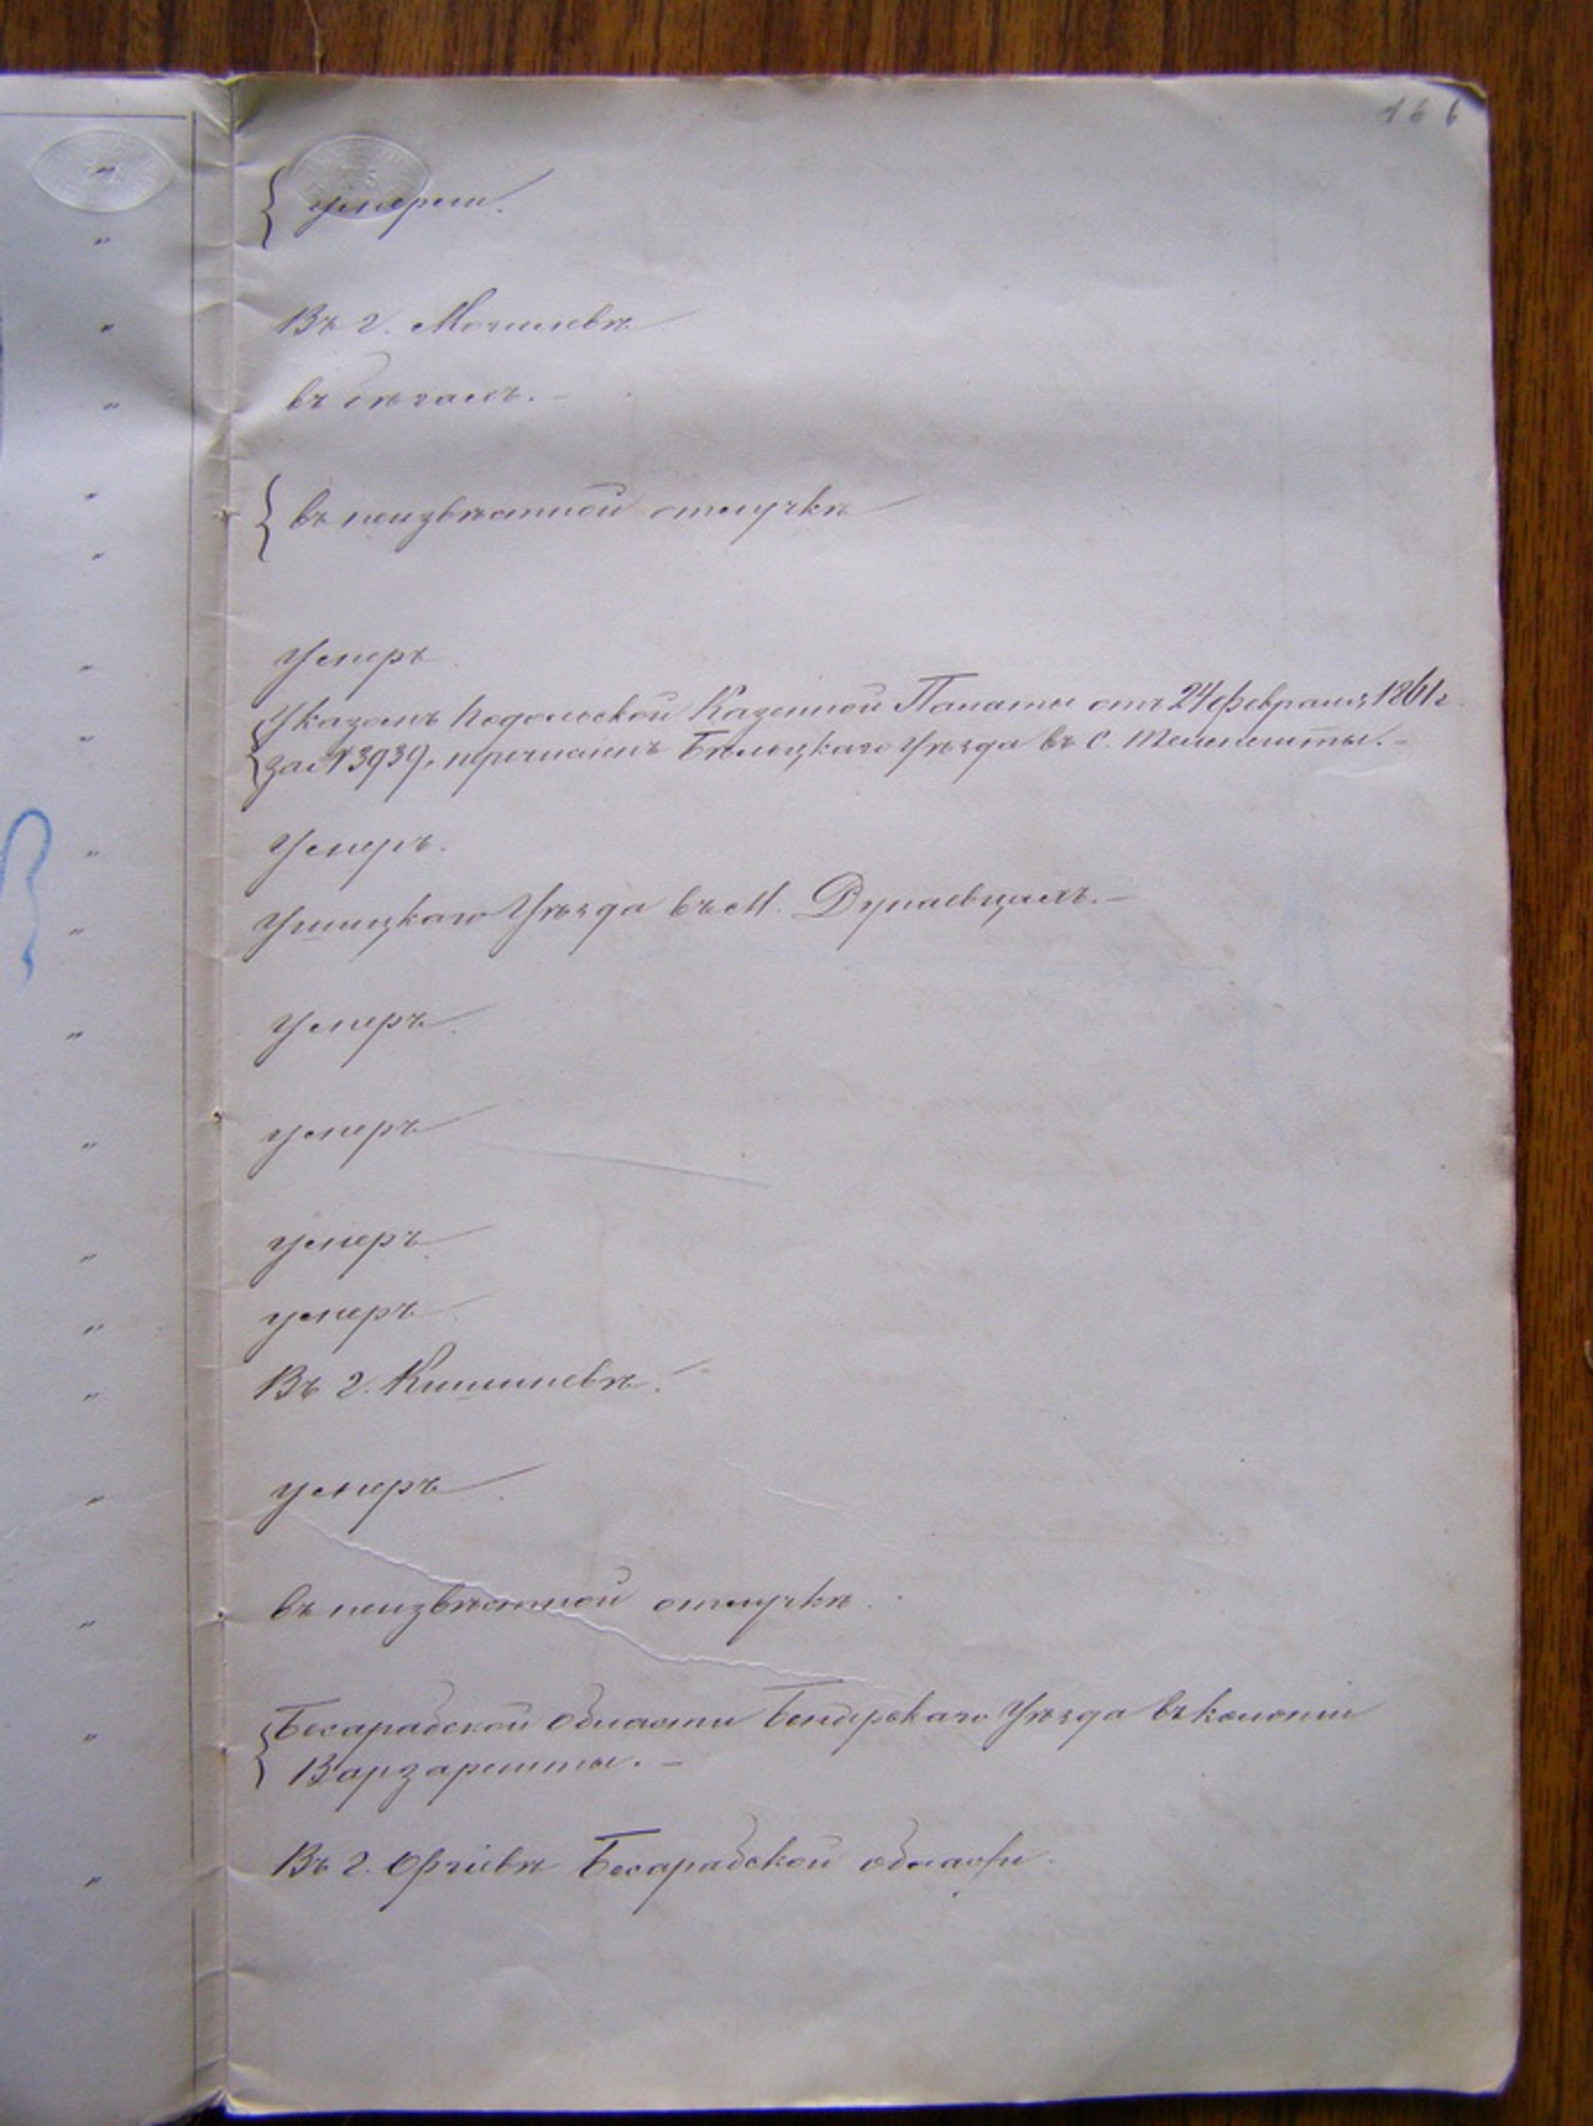 166
умерли.
Въ г. Могилевѣ
въ бѣгахъ. –
въ неизвѣстной отлучкѣ
Умеръ
Указомъ Подольской Казенной Палаты отъ 24 февраля 1861 г.
за № 3939, перечисленъ Бѣльцкаго Уѣзда въ С. Теленешты. –
Умеръ.
Ушицкаго Уѣзда въ М. Дунаевцахъ. –
Умеръ
умеръ
умеръ
умеръ
Въ г. Кишиневѣ. –
умеръ
въ неизвѣстной отлучкѣ.
Бесарабской области Бендерскаго Уѣзда въ колоніи
Варзарешты. –
Въ г. Оргіевѣ Бесарабской области.